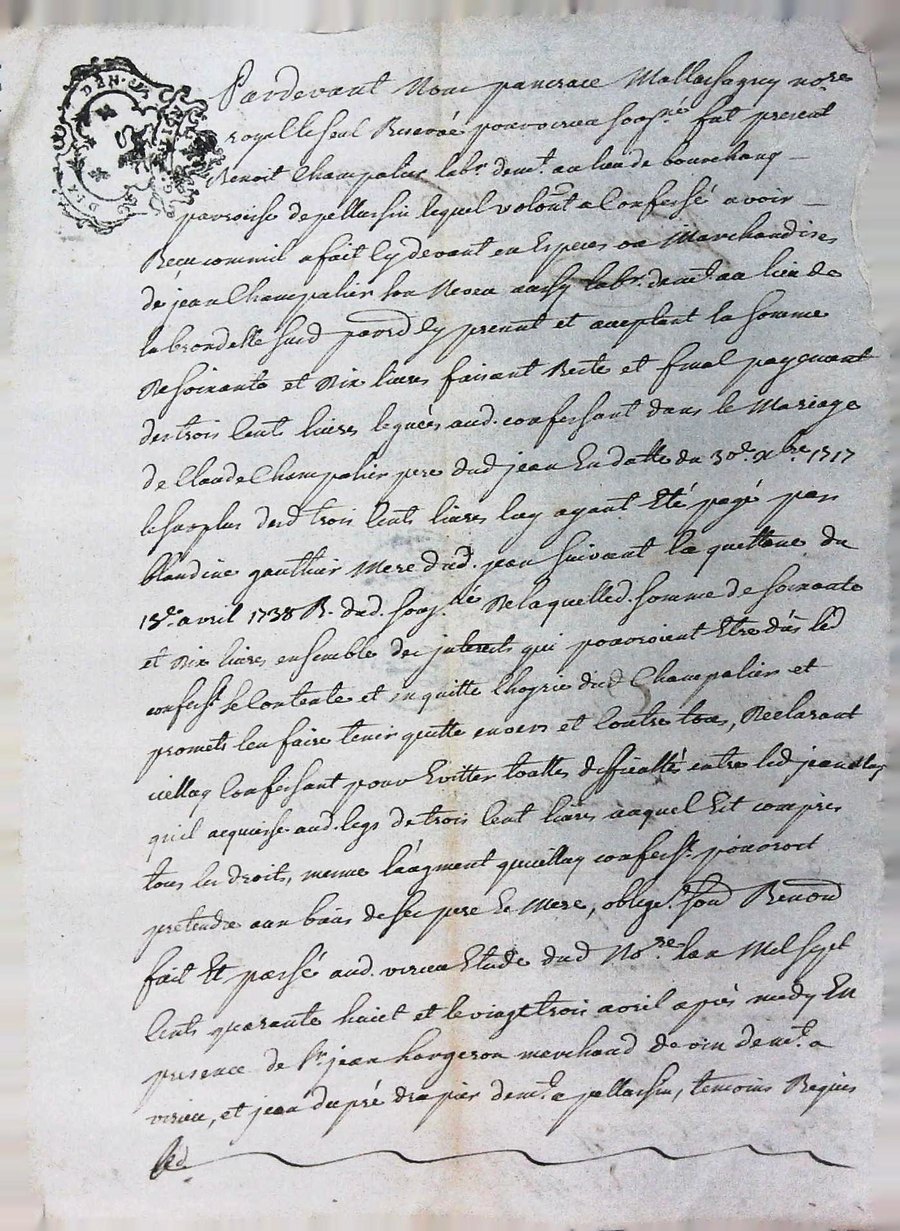 Pardevant Nous pancrace Mallassagny no.re
royal le seul Reservé pour virieu soussig.né fut present
Benoit Champalier lab.r dem.t au lieu de bourchany
parroisse de pellussin lequel volont. a Confessé avoir
Reçu comme il a fait Cy devant en Especes ou Marchandises
de jean Champalier son Neveu aussy lab.r dem.t au lieu de
la brondelle susd parr.d Cy present et acceptant la somme
De soixante et Dix livres faisant Reste et final payement
des trois Cent livres leguées aud. confessant dans le Mariage
de Claude Champalier pere dud jean En datte du 30.e xbre 1717
le surplus desd trois Cents livres luy ayant Eté payé par
blandine gauthier Mere dud. jean suivant la quittance du
13.e avril 1738 R. dud. souss.né De laquelled. somme de soixante
et Dix livres ensemble des interets qui pouvoient Etre dûs led
confess.t se Contente et en quitte l'hoyrie dud Champalier et
promets l'en faire tenir quitte envers et Contre tous, Declarant
icelluy Confessant pour Eviter touttes difficultés entre led jean & luy
qu'il acquiesse aud. legs de trois Cent livres auquel Est compris
tous les droits, meme l'augment qu'icelluy confess.t pouvoit
pretendre aux biens de ses pere & Mere, oblige.t soud Renond
fait Et passé aud. virieu Etude dud No.re l'an Mil sept
Cents quarante huict et le vingt trois avril après midy En
presence de S.r jean hargeron marchand de vin dem.t a
virieu, et jean dupré drapier dem.t a pellussin, temoins Requis
&d.